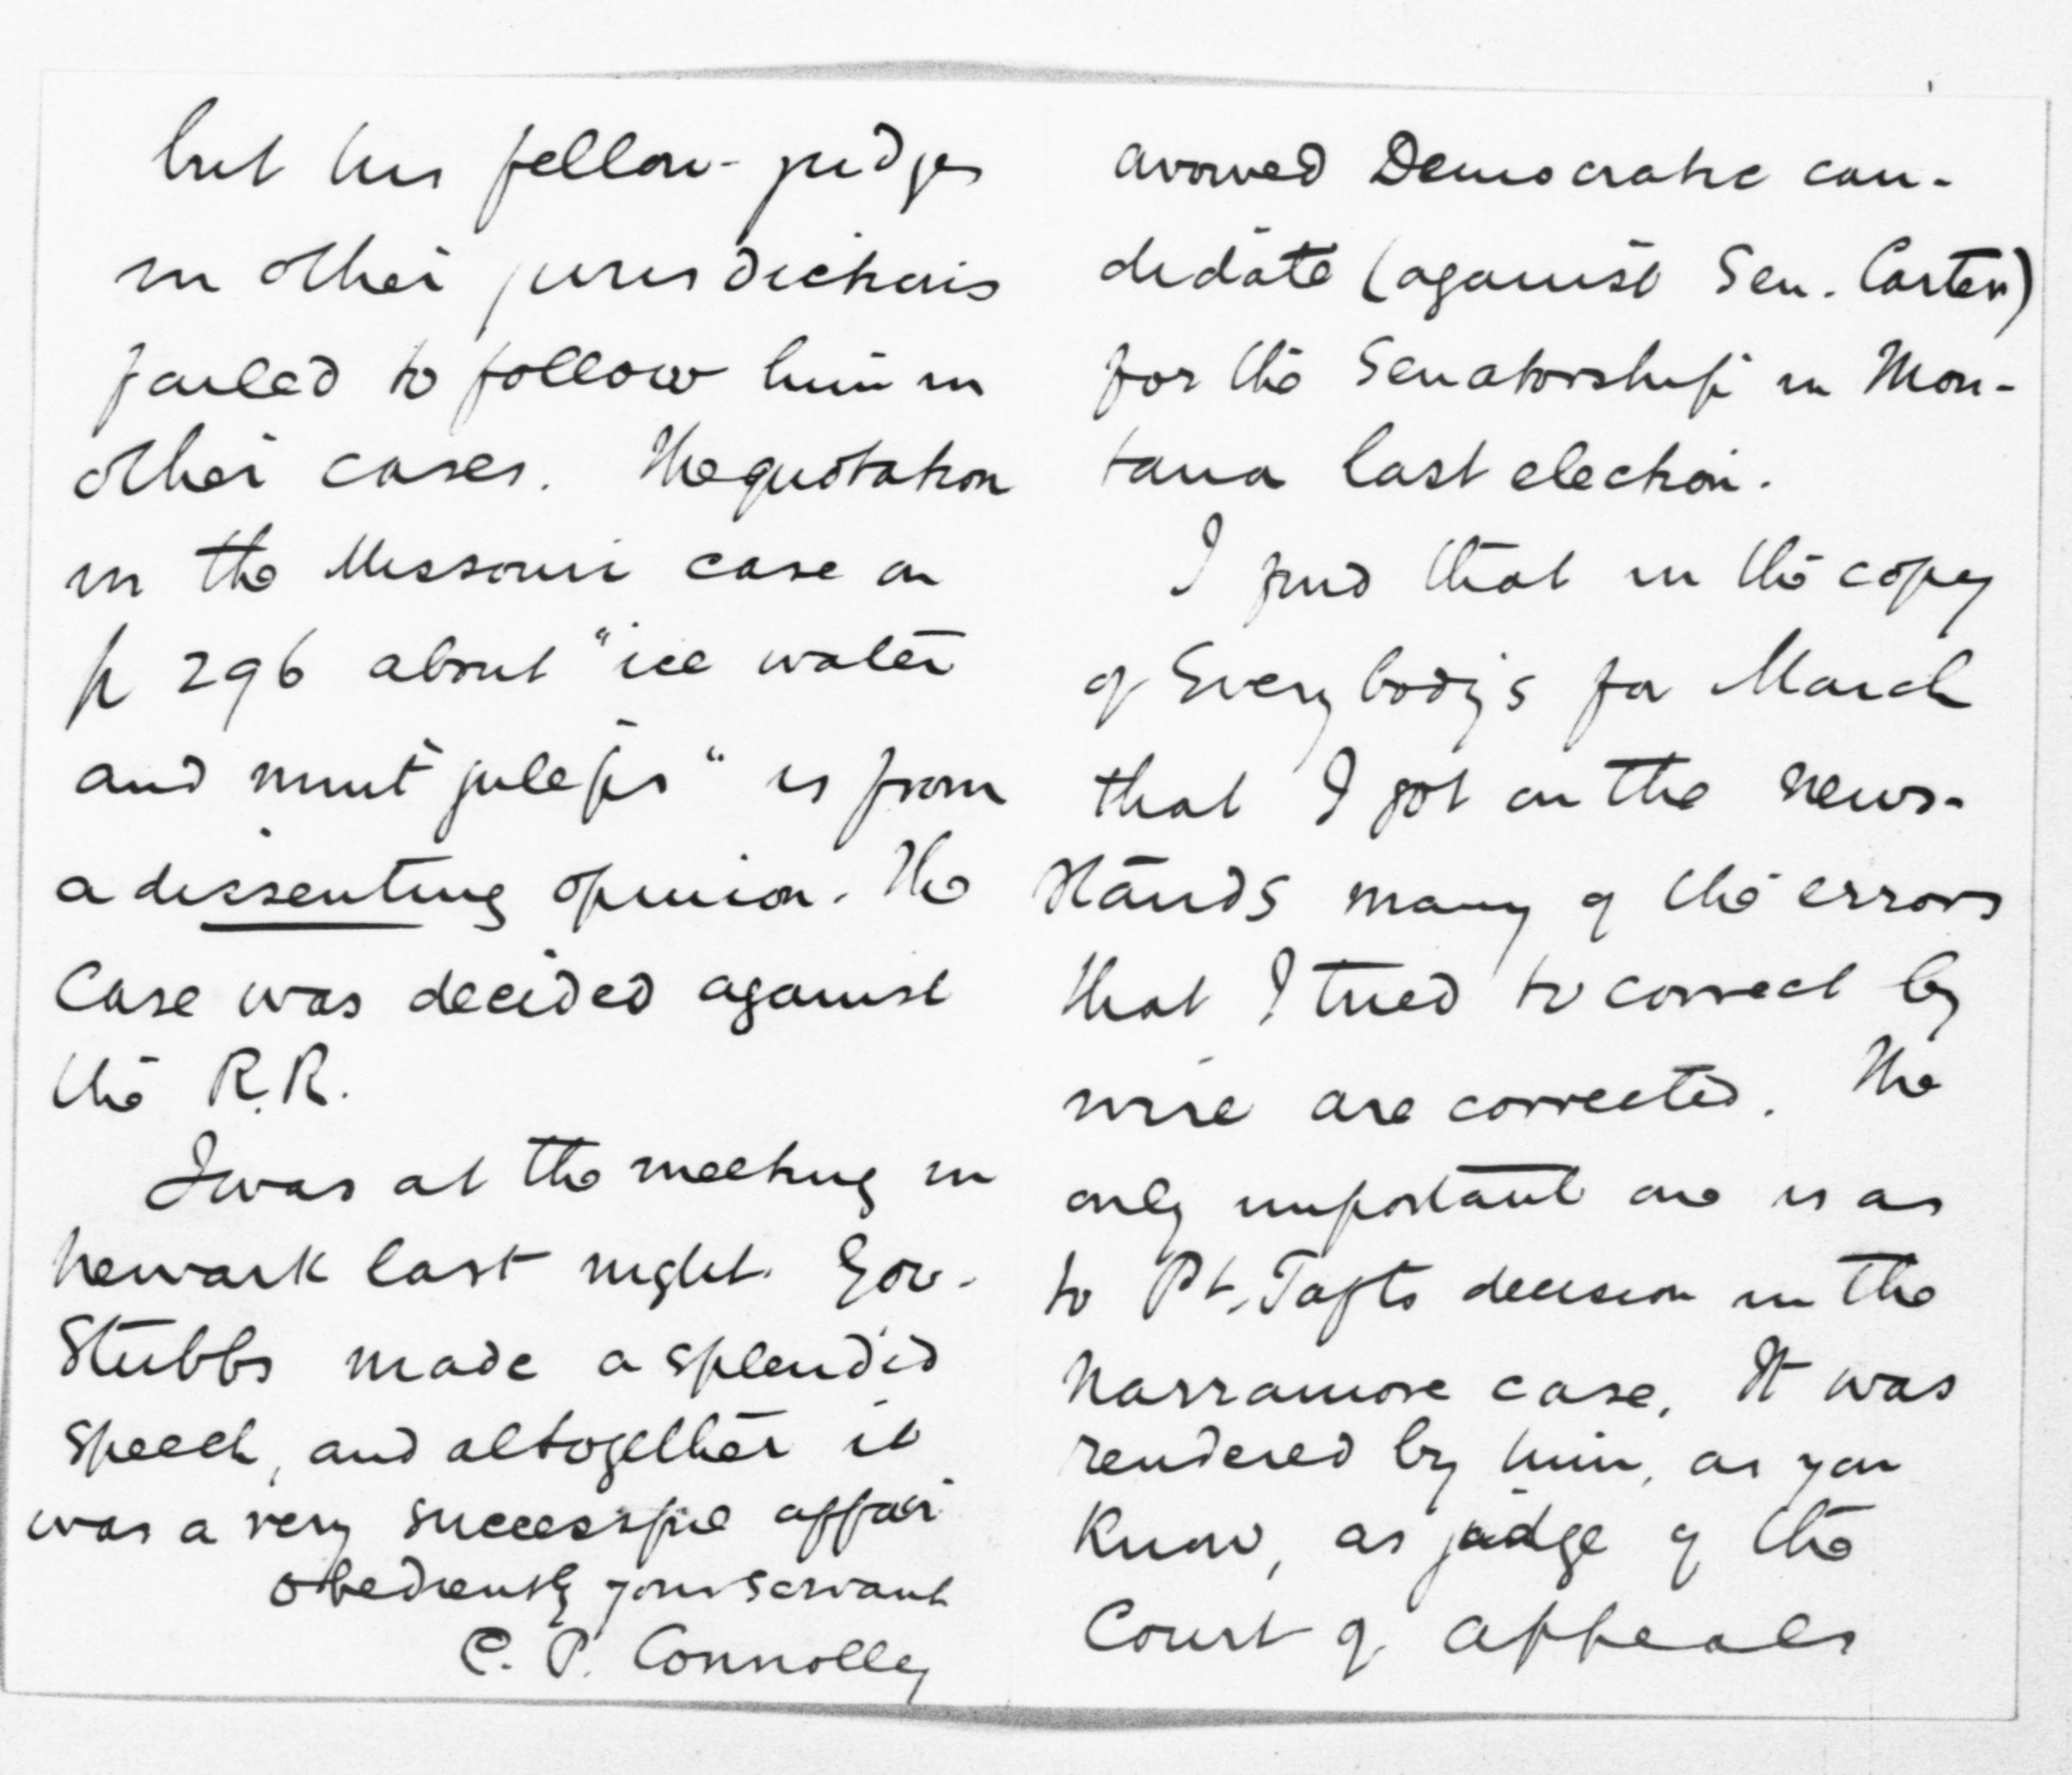 but his fellow-judges
in other jurisdictions
failed to follow him in
other cases. The quotation
in the Missouri case on
p 296 about "ice water
and mint juleps" is from
a dissenting opinion. The
case was decided against
the R.R.
I was at the meeting in
Newark last night. Gov.
Stubbs made a splendid
speech, and altogether it
was a very successful affair
Obediently your servant
C. P. Connolly
avowed Democratic can-
didate (against Sen. Carter)
for the Senatorship in Mon-
tana last election.
I find that in the copy
of Everybody's for March
that I got on the news-
stands many of the errors
that I tried to correct by
wire are corrected. The
only important one is as
to Pt. Tafts decision in the
Narramore case. It was
rendered by him, as you
know, as judge of the
Court of appeals